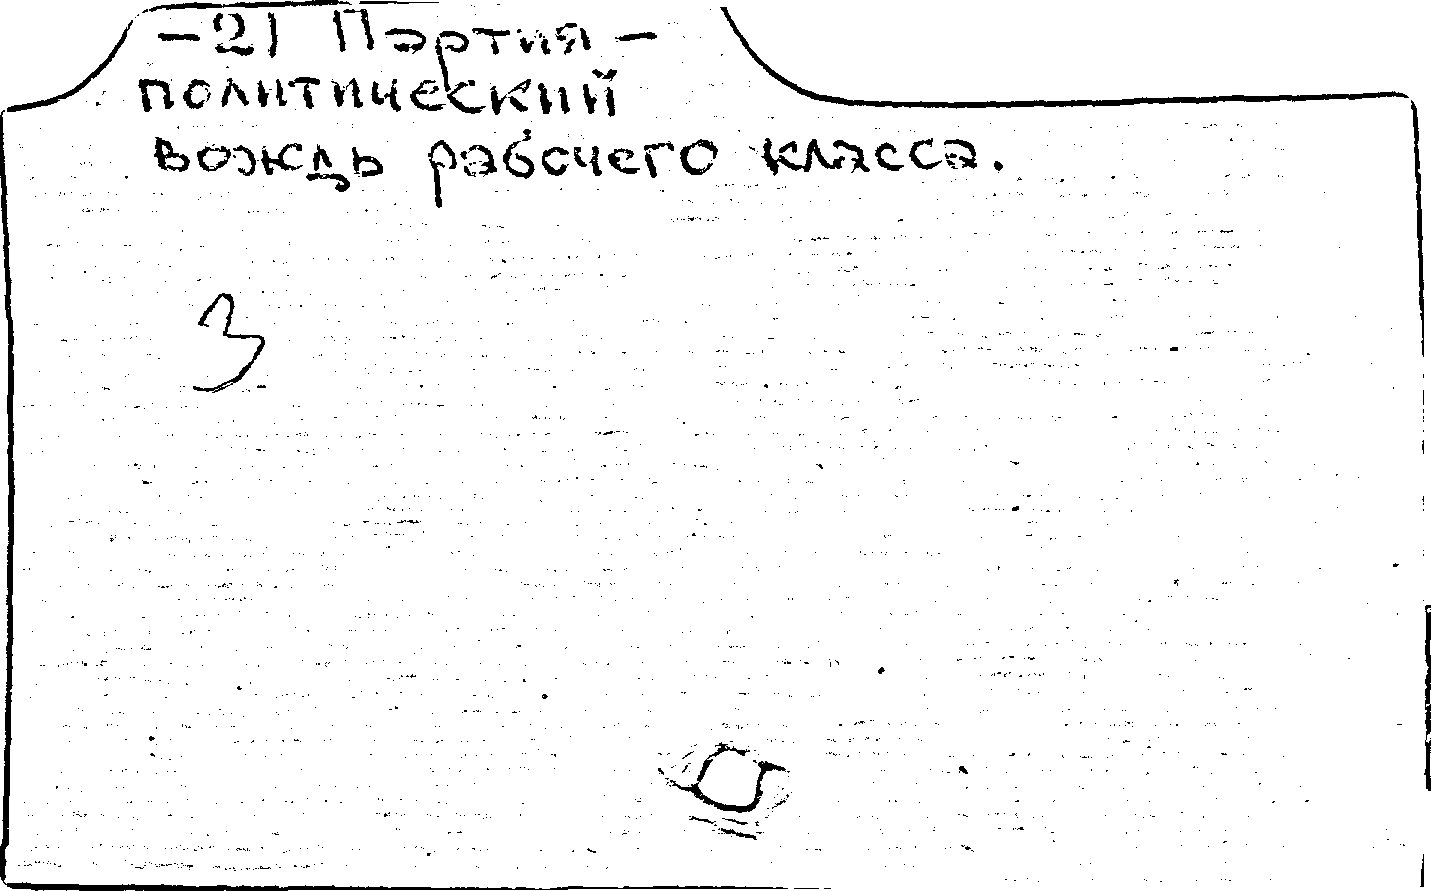 -21 Партия -
политический
вождь рабочего класса.
3